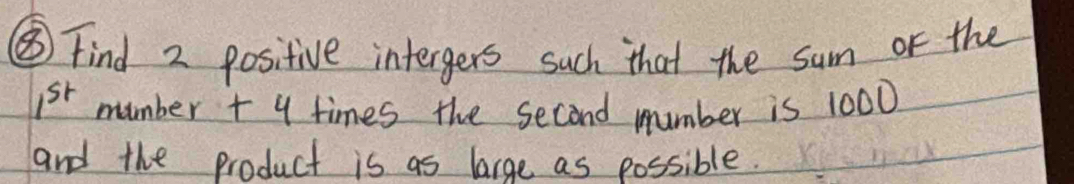 ⑧ Find 2 positive intergers such that the sum of the
1st number + 4 times the second number is 1000
and the product is as large as possible.